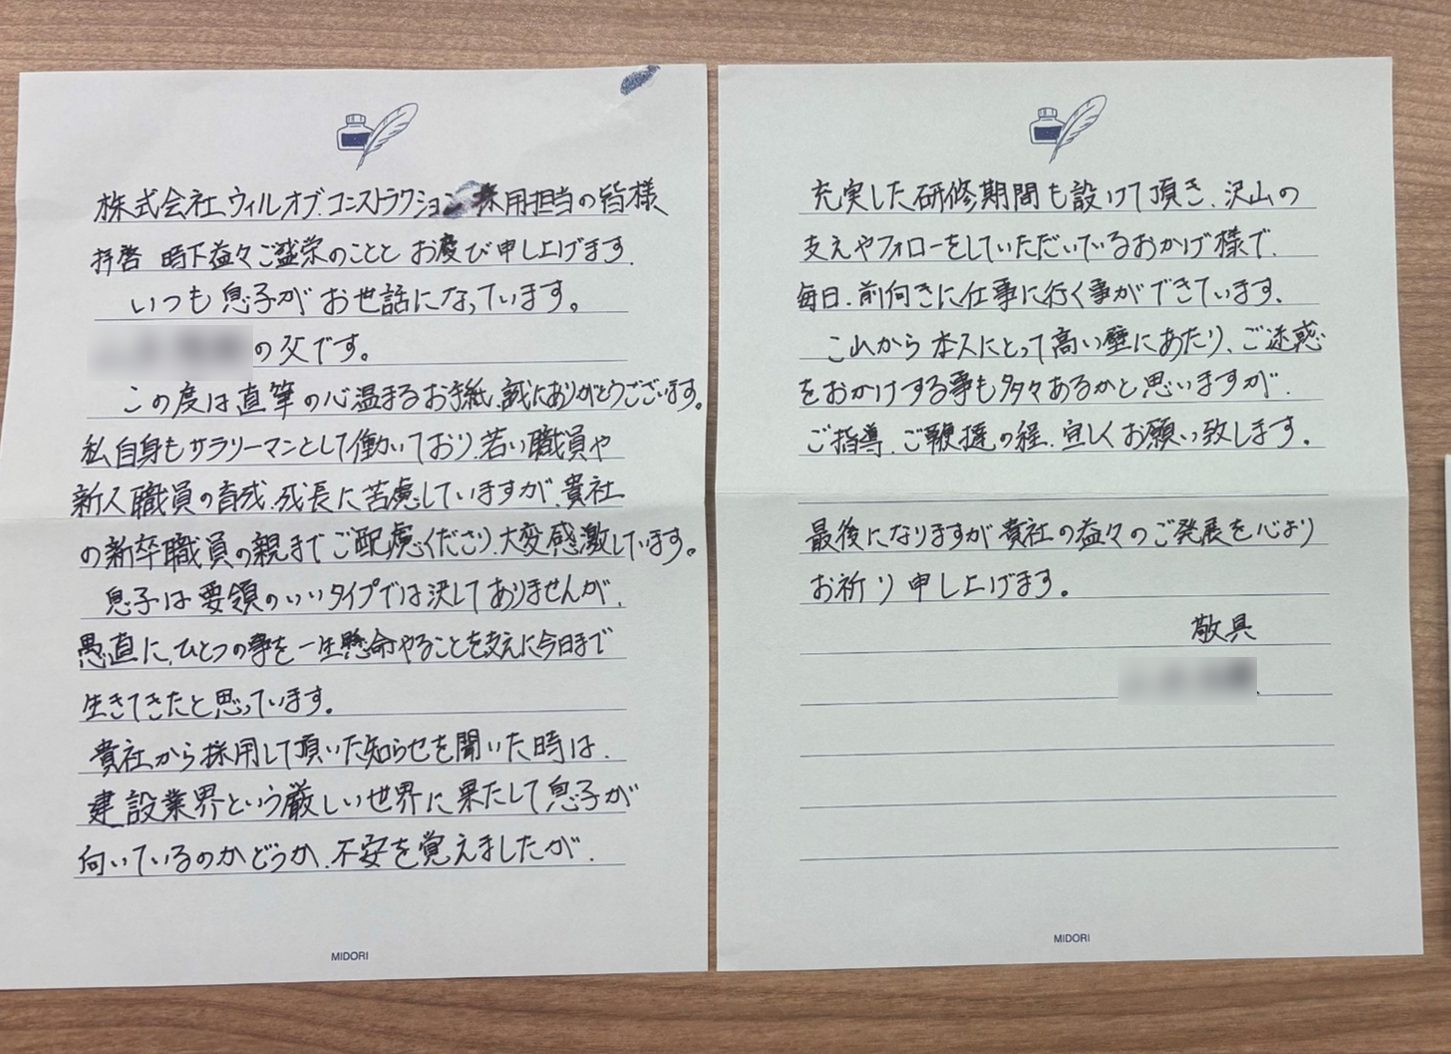 株式会社ウィルオブ・コンストラクション 採用担当の皆様
拝啓 時下益々ご盛栄のこととお慶び申し上げます。
いつも息子がお世話になっています。
の父です。
この度は直筆の心温まるお手紙、誠にありがとうございます。
私自身もサラリーマンとして働いており、若い職員や
新人職員の育成、成長に苦慮していますが、貴社
の新卒職員の親までご配慮くださり、大変感激しています。
息子は要領のいいタイプでは決してありませんが、
愚直に、ひとつの事を一生懸命やることを支えに今日まで
生きてきたと思っています。
貴社から採用して頂いた知らせを聞いた時は、
建設業界という厳しい世界に果たして息子が
向いているのかどうか、不安を覚えましたが、
MIDORI
充実した研修期間も設けて頂き、沢山の
支えやフォローをしていただいているおかげ様で、
毎日、前向きに仕事に行く事ができています。
これから本人にとって高い壁にあたり、ご迷惑
をおかけする事も多々あるかと思いますが、
ご指導、ご鞭撻の程、宜しくお願い致します。
最後になりますが貴社の益々のご発展を心より
お祈り申し上げます。
敬具
MIDORI